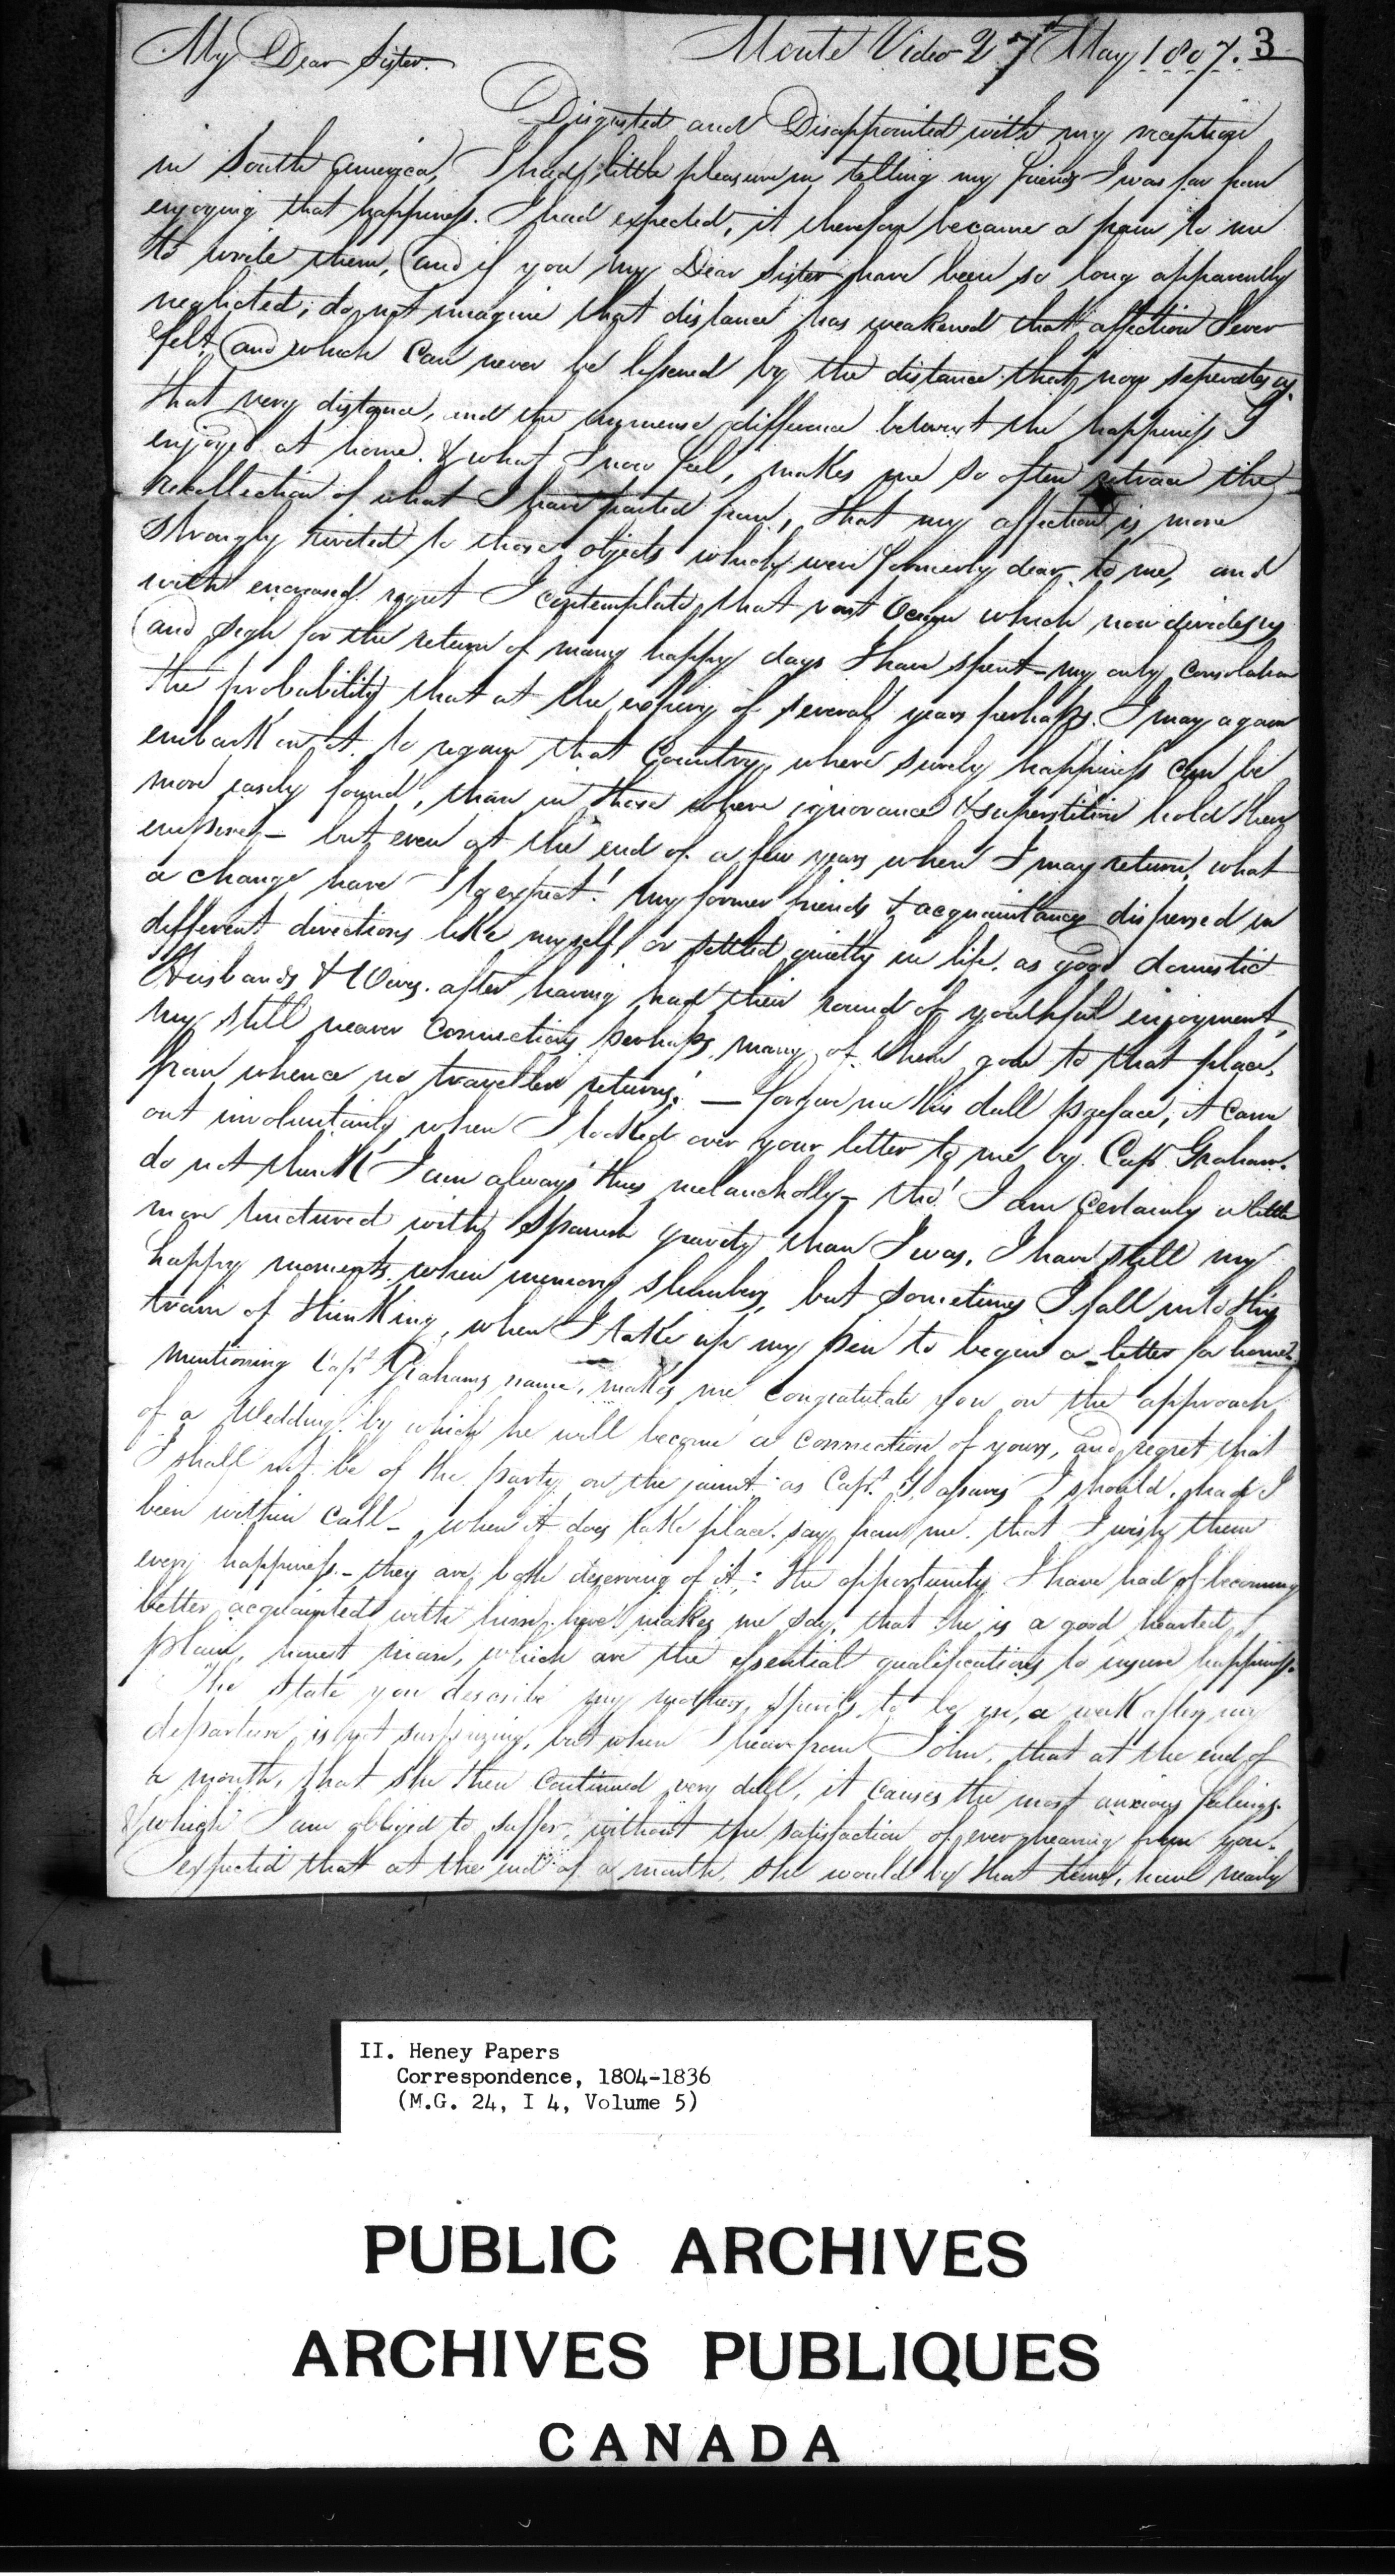 My Dear Sister. Monte Video 27th May 1807. 3
Disgusted and Disappointed with my reception
in South America, I had little pleasure in telling my friends I was far from
enjoying that happiness. I had expected, it therefore became a pain to me
to write them, and if you my Dear Sister have been so long apparently
neglected; do not imagine that distance has weakened that affection I ever
felt, and which can never be lessened by the distance that now seperates us.
that very distance, and the immense difference betwixt the happiness I
enjoyed at home. & what I now feel, makes me so often retrace the
recollection of what I have parted from, that my affection is more
strongly riveted to those objects which were formerly dear to me, and
with encreased regret I contemplate that vast Ocean which now divides us
and sigh for the return of many happy days I have spent - my only consolation
the probability that at the expiry of several years perhaps. I may again
embark on it to regain that Country, where surely happiness can be
more easily found, than in those where ignorance & superstition hold their
empire - but even at the end of a few years when I may return, what
a change have I to expect! my former friends & acquaintances dispersed in
different directions like myself, or settled quietly in life. as good domestic
Husbands & Wives. after having had their round of youthful enjoyment,
my still nearer connections perhaps, many of them gone to that place,
from whence no traveller returns! — forgive me this dull preface, it came
out involuntarily when I looked over your letter to me by Capt. Graham.
do not think I am always thus melancholly - tho' I am certainly a little
more tinctured with Spanish gravity than I was. I have still my
happy moments when memory slumbers, but sometimes I fall into this
train of thinking, when I take up my pen to begin a letter for home.
mentioning Capt Grahams name, makes me congratulate you on the approach
of a Wedding by which he will become a connection of yours, and regret that
I shall not be of the party on the jaunt as Capt. G. assures I should, had I
been within call - when it does take place. say from me. that I wish them
every happiness - they are both deserving of it: the opportunity I have had of becoming
better acquainted with him here makes me say, that he is a good hearted,
plain, honest man, which are the essential qualifications to insure happiness.
The state you describe my mothers spirits to be in, a week after my
departure, is not surprizing, but when I hear from John, that at the end of
a month, that she then continued very dull, it causes the most anxious feelings.
& which I am obliged to suffer, without the satisfaction of ever hearing from you.
I expected that at the end of a month, she would by that time, have nearly
II. Heney Papers
Correspondence, 1804-1836
(M.G. 24, I 4, Volume 5)
PUBLIC ARCHIVES
ARCHIVES PUBLIQUES
CANADA